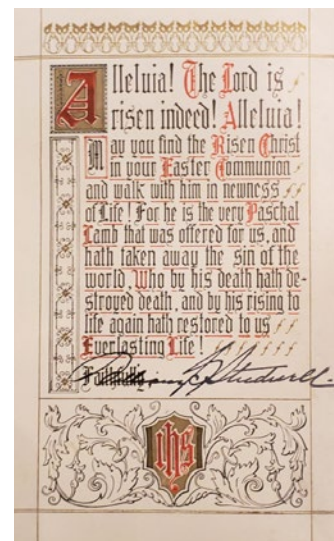 Alleluia! The Lord is
risen indeed! Alleluia!
May you find the Risen Christ
in your Easter Communion
and walk with him in newness
of Life! For he is the very Paschal
Lamb that was offered for us, and
hath taken away the sin of the
world, Who by his death hath de-
stroyed death, and by his rising to
life again hath restored to us
Everlasting Life!
Faithfully
ihs